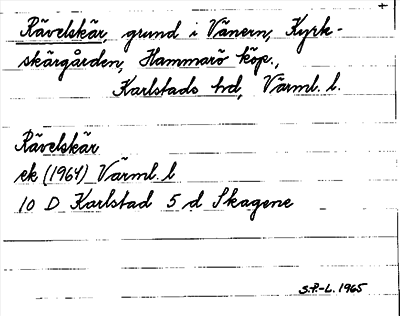 Rävelskär grund i Vänern, Kyrk-
skärgården, Hammarö köp.,
Karlstads hd, Värml. l.
Rävelskär
ek (1964) Värml. l
10 D Karlstad 5 d Skagene
S.P.-L. 1965